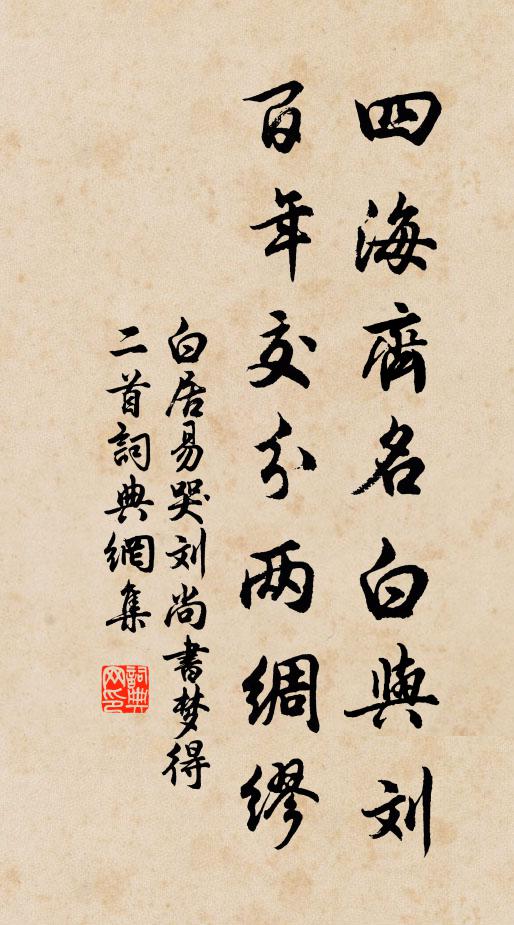 四海齊名白與刘
百年交分两綢繆
白居易哭刘尚書梦得
二首詞典網集
詞典
网印